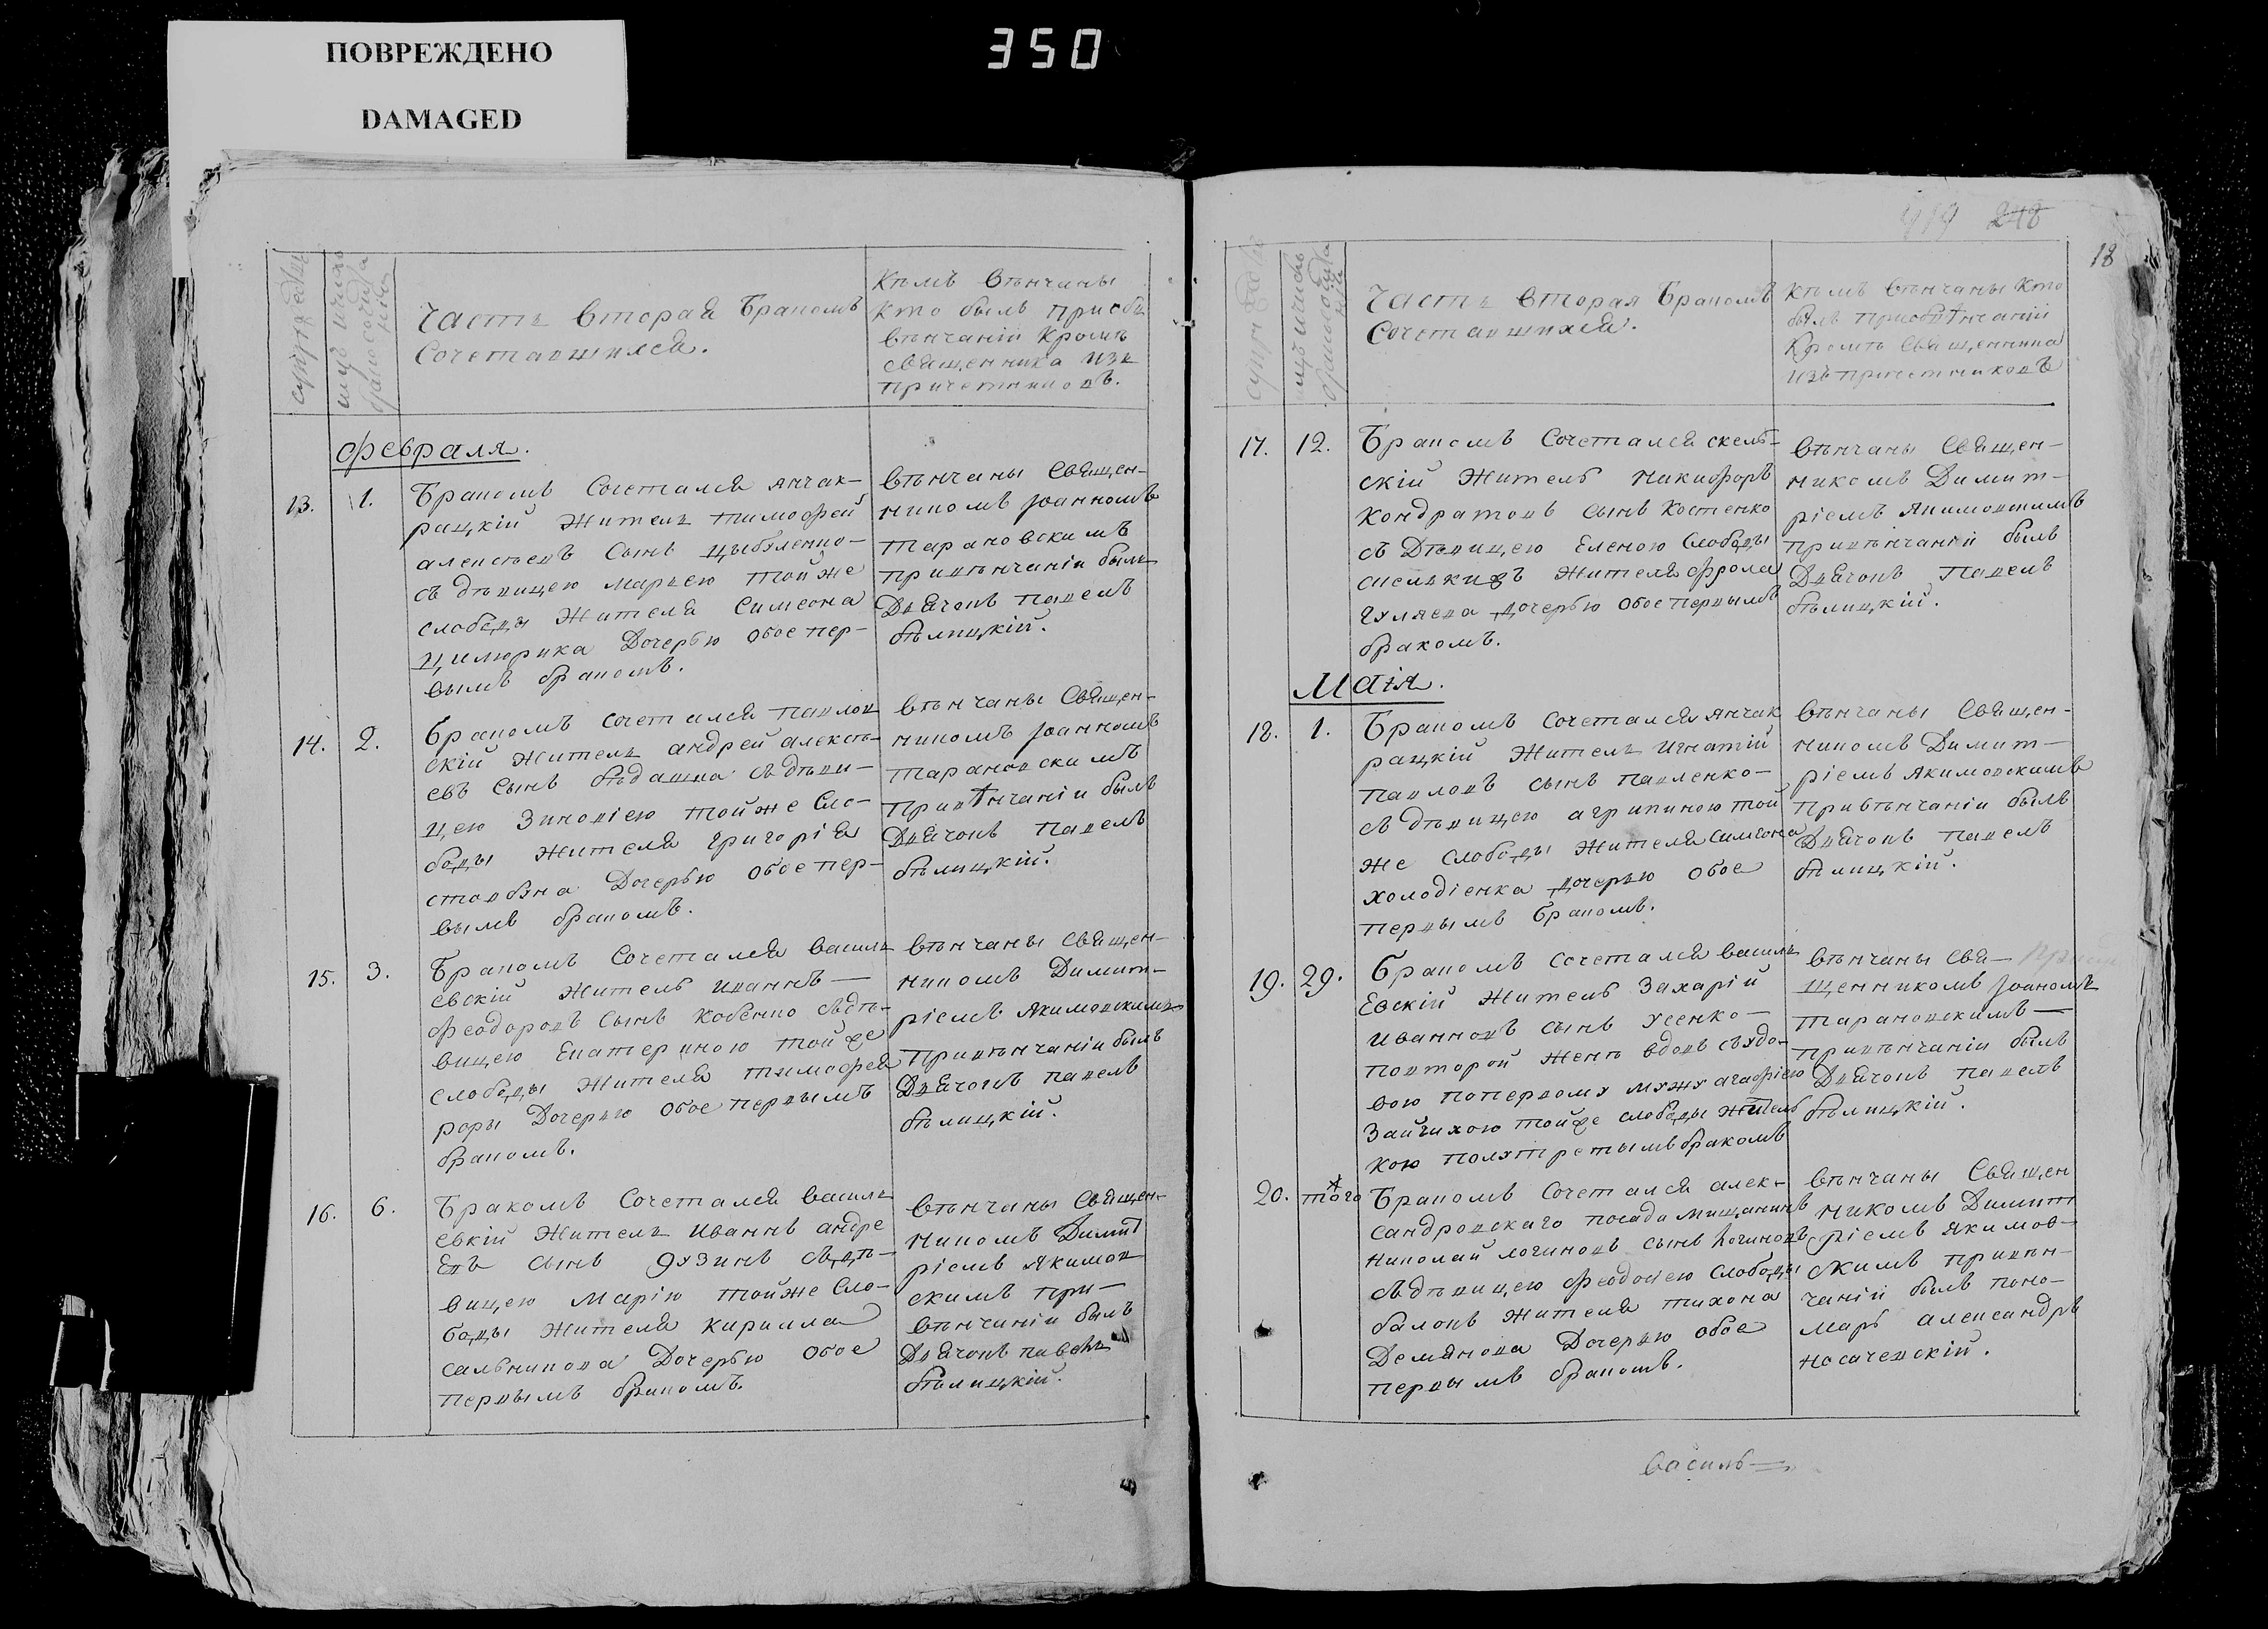 ПОВРЕЖДЕНО
DAMAGED
350
Часть вторая бракомъ
Сочетавшихся.
Кѣмъ вѣнчаны
Кто былъ присбѣ
вѣнчаніи Кромѣ
священника изъ
причетниковъ.
Февраля.
13. 1. Бракомъ Сочетался янчак-
рацкій житель тимофей
алексѣевъ Сынъ цыбуленко-
съ дѣвицею марьею тойже
слободы жителя Симеона
цимюрика Дочерью Обое пер-
вымъ бракомъ.
вѣнчаны Священ-
никомъ Іоанномъ
тарановскимъ
привѣнчаніи былъ
Дьячокъ павелъ
бѣлицкій.
14. 2. бракомъ сочетался павлов
скій житель андрей алексѣ-
евъ Сынъ бѣдашка съдѣви-
цею Зиновіею тойже Сло-
боды жителя григорія
стовбуна Дочерью Обое пер-
вымъ бракомъ.
вѣнчаны Священ-
никомъ Іоанномъ
тарановскимъ
привѣнчаніи былъ
Дьячокъ павелъ
бѣлицкій.
15. 3. Бракомъ Сочетался василь
евскій житель иваннъ-
Феодоровъ Сынъ кобенко съдѣ-
вицею Екатериною тойже
слободы жителя тимофея
роры Дочерью Обое первымъ
бракомъ.
вѣнчаны священ-
никомъ Димит-
ріемъ якимовскимъ
привѣнчаніи былъ
Дьячокъ павелъ
бѣлицкій.
16. 6. Бракомъ Сочетался василь
евкій житель Иваннъ андре
Евъ Сынъ Дузинъ съдѣ-
вицею Марію тойже Сло-
боды жителя кирилла
сальникова Дочерью Обое
первымъ бракомъ.
вѣнчаны Священ-
никомъ Димит
ріемъ якимов
скимъ при-
вѣнчаніи былъ
Дьячокъ павелъ
бѣлицкій.
248
18
Часть вторая Бракомъ
Сочетавшихся.
Кѣмъ вѣнчаны Кто
былъ присбвѣнчаніи
Кромѣ Священника
изъ причетниковъ
17. 12. Бракомъ Сочетался скель-
скій житель никифоръ
кондратовъ сынъ Костенко
съ Дѣвицею Еленою Слободы
жителя фрола
гуляева дочерью Обое первымъ
бракомъ.
вѣнчаны Священ-
никомъ Димит-
ріемъ якимовскимъ
привѣнчаніи былъ
Дьячокъ павелъ
бѣлицкій.
Маія.
18. 1. Бракомъ Сочетался янчак
рацкій житель игнатій
павловъ сынъ павленко-
съ дѣвицею агрипиною той
же слободы жителя симеона
холодіенка дочерью Обое
первымъ бракомъ.
вѣнчаны Священ-
никомъ Димит-
ріемъ якимовскимъ
привѣнчаніи былъ
Дьячокъ павелъ
бѣлицкій.
19. 29. бракомъ сочетался василь
Евскій житель Захарій
иванновъ сынъ усенко-
повторой женѣ вдовъ съвдо-
вою попервому мужу агафіею
Зайчихою тойже слободы житель
кою полутретымъ бракомъ
вѣнчаны Свя-
щенникомъ Іоаномъ
тарановскимъ-
привѣнчаніи былъ
Дьячокъ павелъ
бѣлицкій.
20. того Бракомъ Сочетался алек-
сандровскаго посада мищанинъ
николай логиновъ сынъ логиновъ
съдѣвицею феодосіею Слободы
балокъ жителя тихона
Демянова Дочерью обое
первымъ бракомъ.
вѣнчаны Священ
никомъ Димит
ріемъ якимов-
скимъ привѣн-
чаніи былъ поно-
марь александръ
носачевскій.
василь-